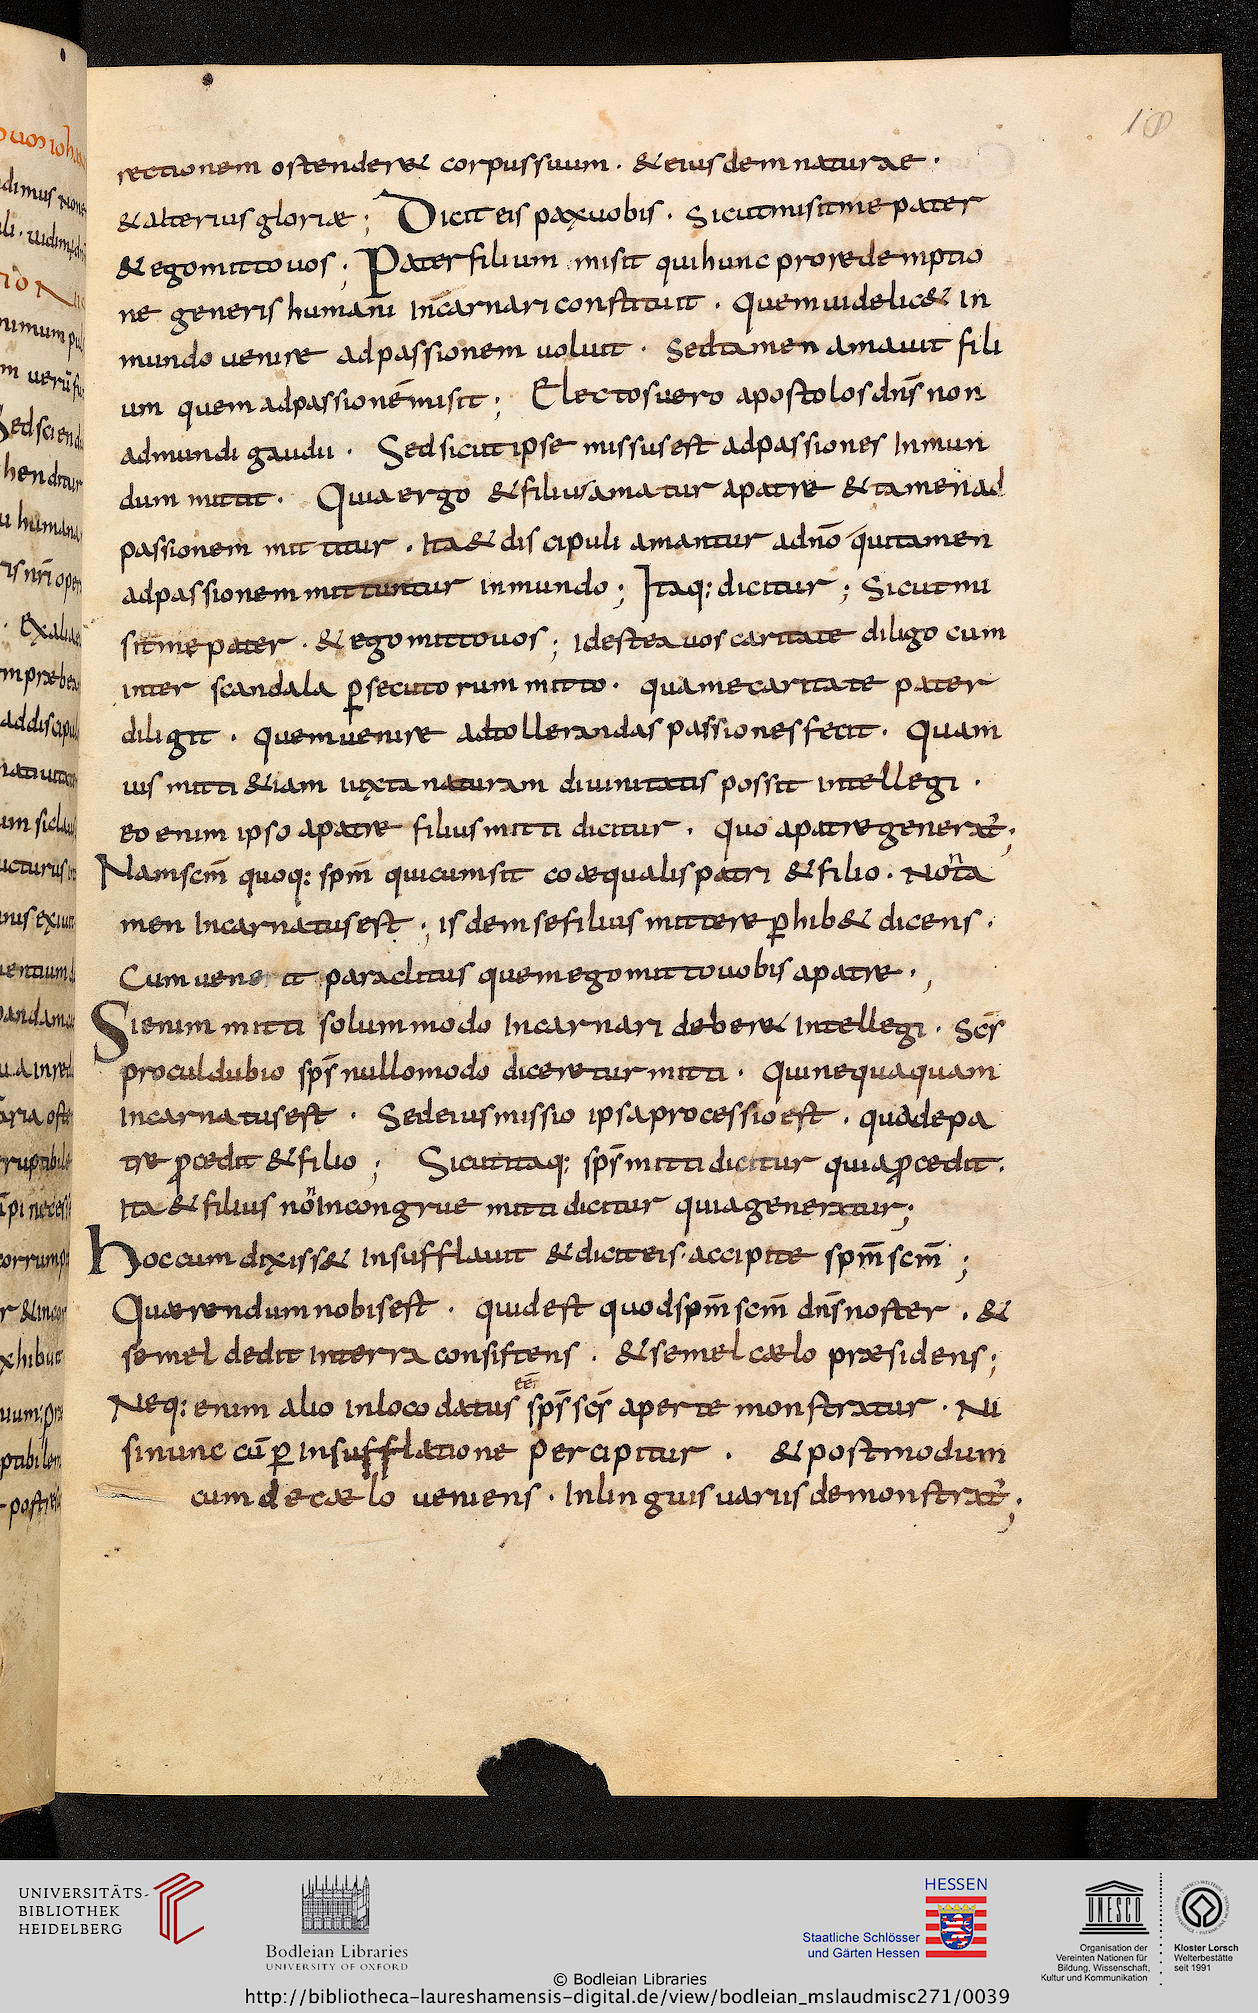 18
rectionem ostenderet corpus suum · & eiusdem naturae ·
& alterius gloriæ ; Dicit eis pax uobis · Sicut misit me pater
& ego mitto uos ; Pater filium misit qui hunc pro redemptio
ne generis humani Incarnari constituit · Quem uidelic& In
mundo uenire ad passionem uoluit · Sed tamen amauit fili
um quem ad passionē misit ; Electos uero apostolos dn̄s non
ad mundi gaudii · Sed sicut ipse missus est ad passiones In mun
dum mittit · Quia ergo & filius amatur a patre & tamen ad
passionem mittitur · Ita & discipuli amantur a dn̄o qui tamen
ad passionem mittuntur in mundo ; Itaq: dicitur ; Sicut mi
sit me pater · & ego mitto uos ; id est ea uos caritate diligo cum
inter scandala p̄secutorum mitto · qua me caritate pater
diligit · quem uenire ad tollerandas passiones fecit · Quam
uis mitti &iam iuxta naturam diuinitatis possit intellegi ·
eo enim ipso a patre filius mitti dicitur · quo a patre generat̄ ;
Nam sc̄m quoq: sp̄m qui cum sit coæqualis patri & filio · Nō ta
men Incarnatus est ; isdem se filius mittere p̄hib& dicens ·
Cum uenerit paraclitus quem ego mitto uobis a patre · ,
Si enim mitti solummodo Incarnari deber& Intellegi · Sc̄s
procul dubio sp̄s nullo modo diceretur mitti · Qui nequaquam
Incarnatus est · Sed eius missio ipsa processio est · qua de pa
tre p̄cedit & filio ; Sicut itaq: sp̄s mitti dicitur quia p̄cedit ·
Ita & filius nō Incongrue mitti dicitur quia generatur ;
Hoc cum dixiss& Insufflauit & dicit eis · accipite sp̄m sc̄m ;
Quærendum nobis est · quid est quod sp̄m sc̄m dn̄s noster · &
semel dedit In terra consistens · & semel cælo præsidens ;
Neq: enim alio in loco datus ēē sp̄s sc̄s aperte monstratur · Ni
si nunc cū p̄ Insufflatione percipitur · & postmodum
cum de cælo ueniens · In linguis uariis demonstrat̄ ;
UNIVERSITÄTS-
BIBLIOTHEK
HEIDELBERG
Bodleian Libraries
UNIVERSITY OF OXFORD
HESSEN
Staatliche Schlösser
und Gärten Hessen
UNESCO
Organisation der
Vereinten Nationen für
Bildung, Wissenschaft,
Kultur und Kommunikation
Kloster Lorsch
Welterbestätte
seit 1991
© Bodleian Libraries
http://bibliotheca-laureshamensis-digital.de/view/bodleian_mslaudmisc271/0039